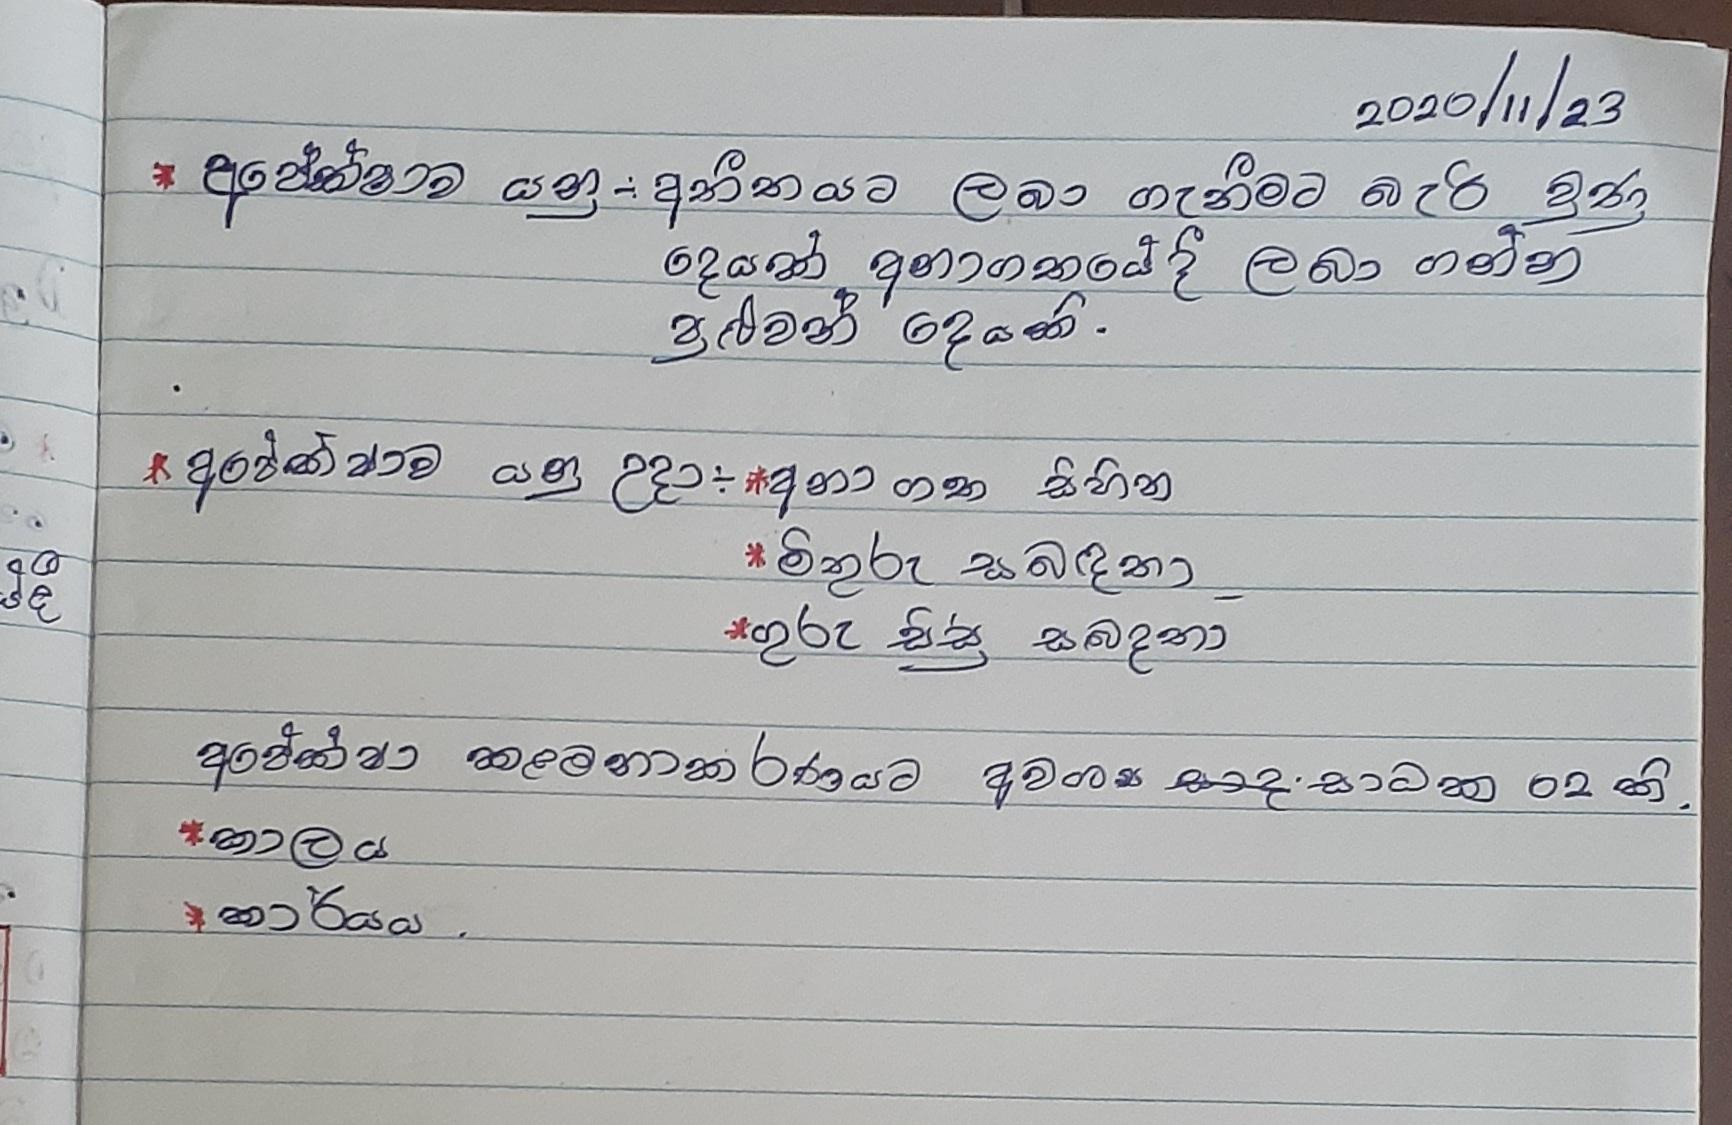 2020/11/23
* අපේක්ෂාව යනු ÷ අතීතයට ලබා ගැනීමට බැරි වුණු
දෙයක් අනාගතයේදී ලබා ගන්න
පුළුවන් දෙයකි.
* අපේක්ෂාව යනු උදා ÷ * අනාගත සිහින
* මිතුරු සබඳතා
* ගුරු සිසු සබදතා
අපේක්ෂා කළමනාකරණයට අවශ්‍ය සාධක 02 කි.
* කාලය
* කාර්යය.